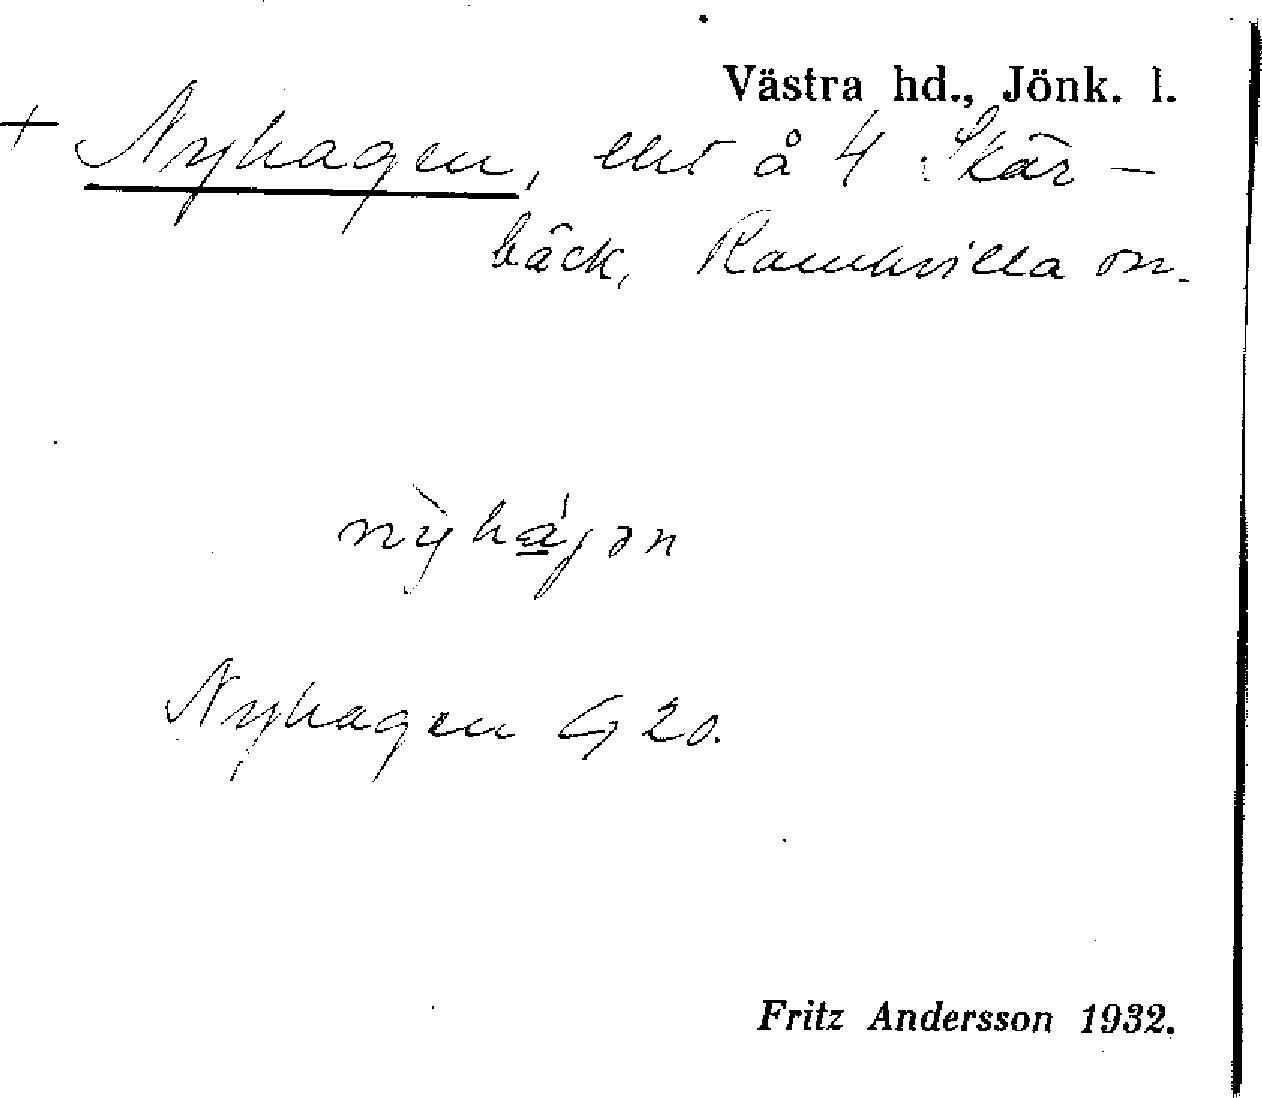 Västra hd., Jönk. l.
+ Nyhagen, å 4 Skär-
bäck, Ramkvilla sn.
nỳhágən
Nyhagen G 20.
Fritz Andersson 1932.